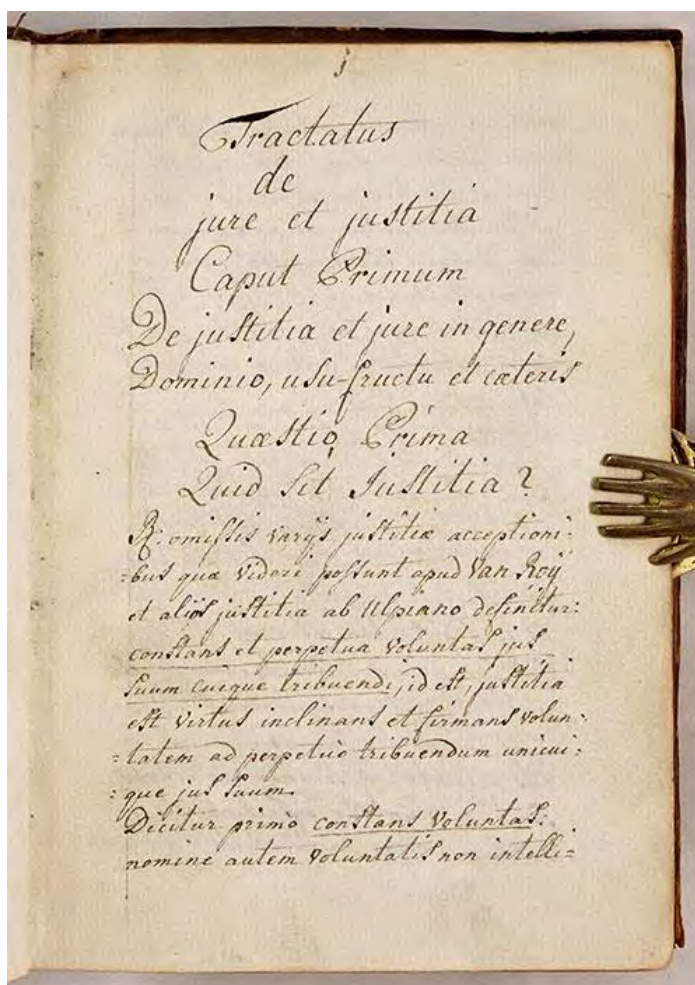 j
Tractatus
de
jure et justitia
Caput Primum
De justitia et jure in genere,
Dominio, usu-fructu et cæteris
Quæstio Prima
Quid sit Justitia?
R: omissis varijs justitiæ acceptioni:
:bus quæ videri possunt apud Van Roij
et alios justitia ab Ulpiano definitur:
constans et perpetua voluntas jus
suum cuique tribuendi, id est, justitia
est virtus inclinans et firmans volun:
:tatem ad perpetuo tribuendum unicui:
:que jus suum.
Dicitur primo constans voluntas:
nomine autem voluntatis non intelli=